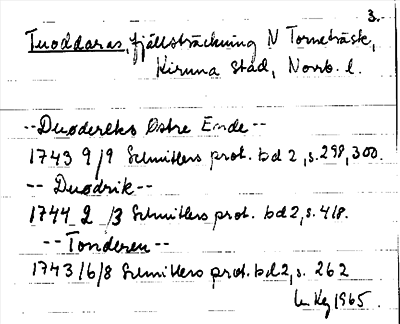 3.
Tuoddaras, fjällsträckning N Torneträsk,
Kiruna stad, Norrb. l.
--Duoderelks Østre Ende--
1743 9/9 Schnitlers prot. bd 2, s. 298, 300.
-- Duodrik--
1744 2/3 Schnitlers prot. bd 2, s. 418.
--Tonderen--
1743/6/8 Schnitlers prot. bd 2, s. 262
1965.